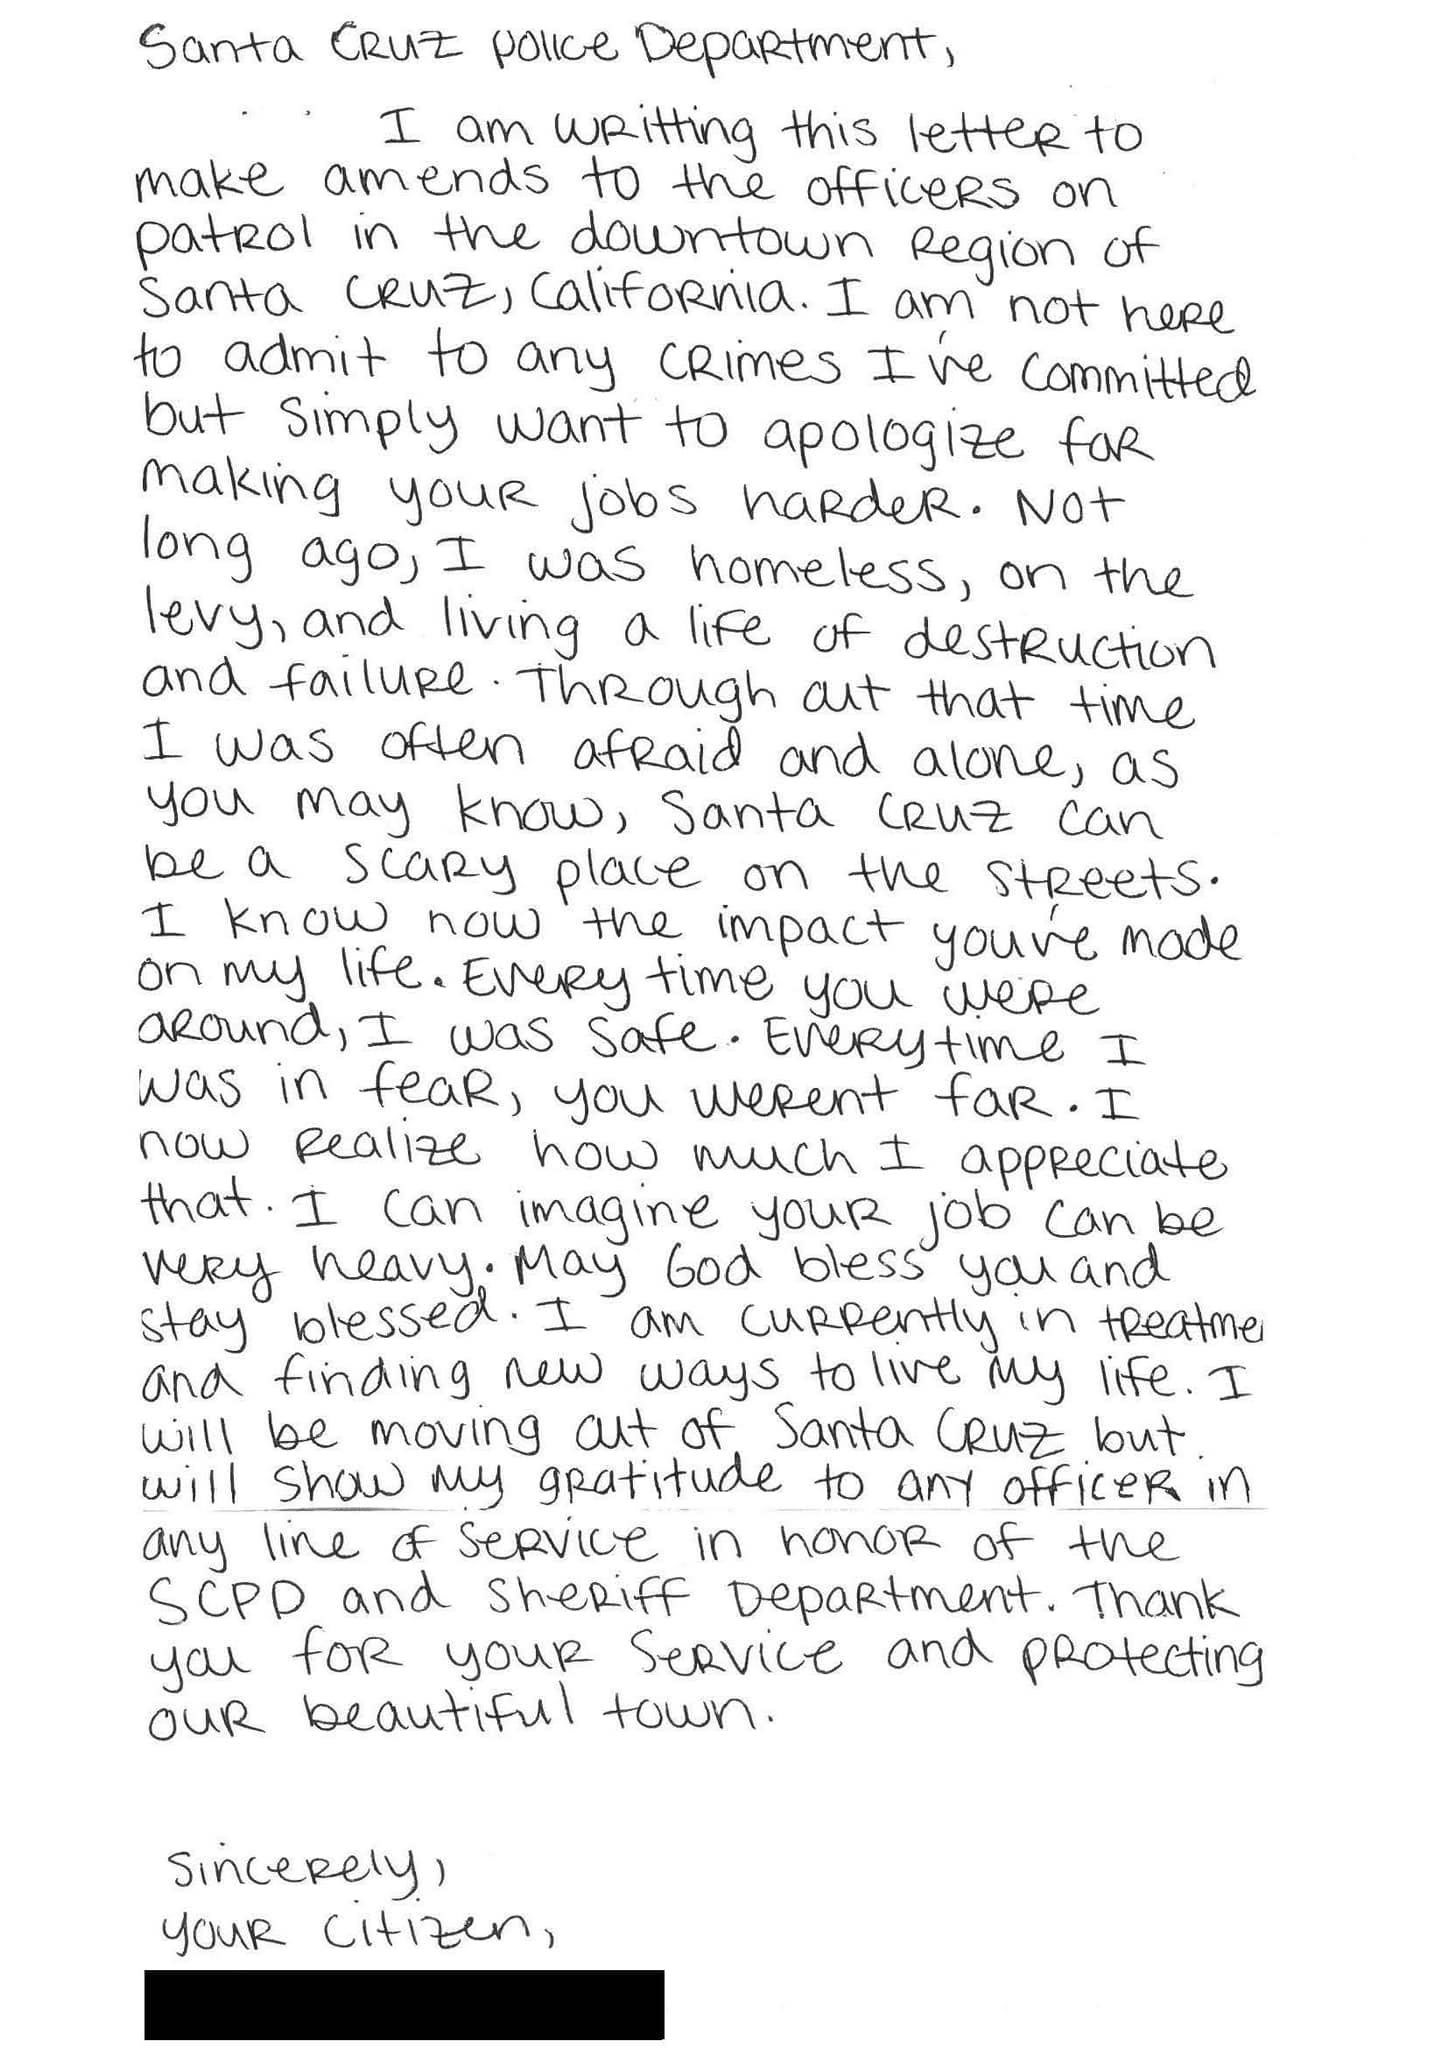 Santa Cruz Police Department,
I am writting this letter to
make amends to the officers on
patrol in the downtown region of
Santa Cruz, California. I am not here
to admit to any crimes I've committed
but simply want to apologize for
making your jobs harder. Not
long ago, I was homeless, on the
levy, and living a life of destruction
and failure. Through out that time
I was often afraid and alone, as
you may know, Santa Cruz can
be a scary place on the streets.
I know now the impact you've made
on my life. Every time you were
around, I was safe. Everytime I
was in fear, you werent far. I
now realize how much I appreciate
that. I can imagine your job can be
very heavy. May God bless you and
stay blessed. I am currently in treatme
and finding new ways to live my life. I
will be moving out of Santa Cruz but
will show my gratitude to any officer in
any line of service in honor of the
SCPD and Sheriff Department. Thank
you for your service and protecting
our beautiful town.
Sincerely,
your citizen,